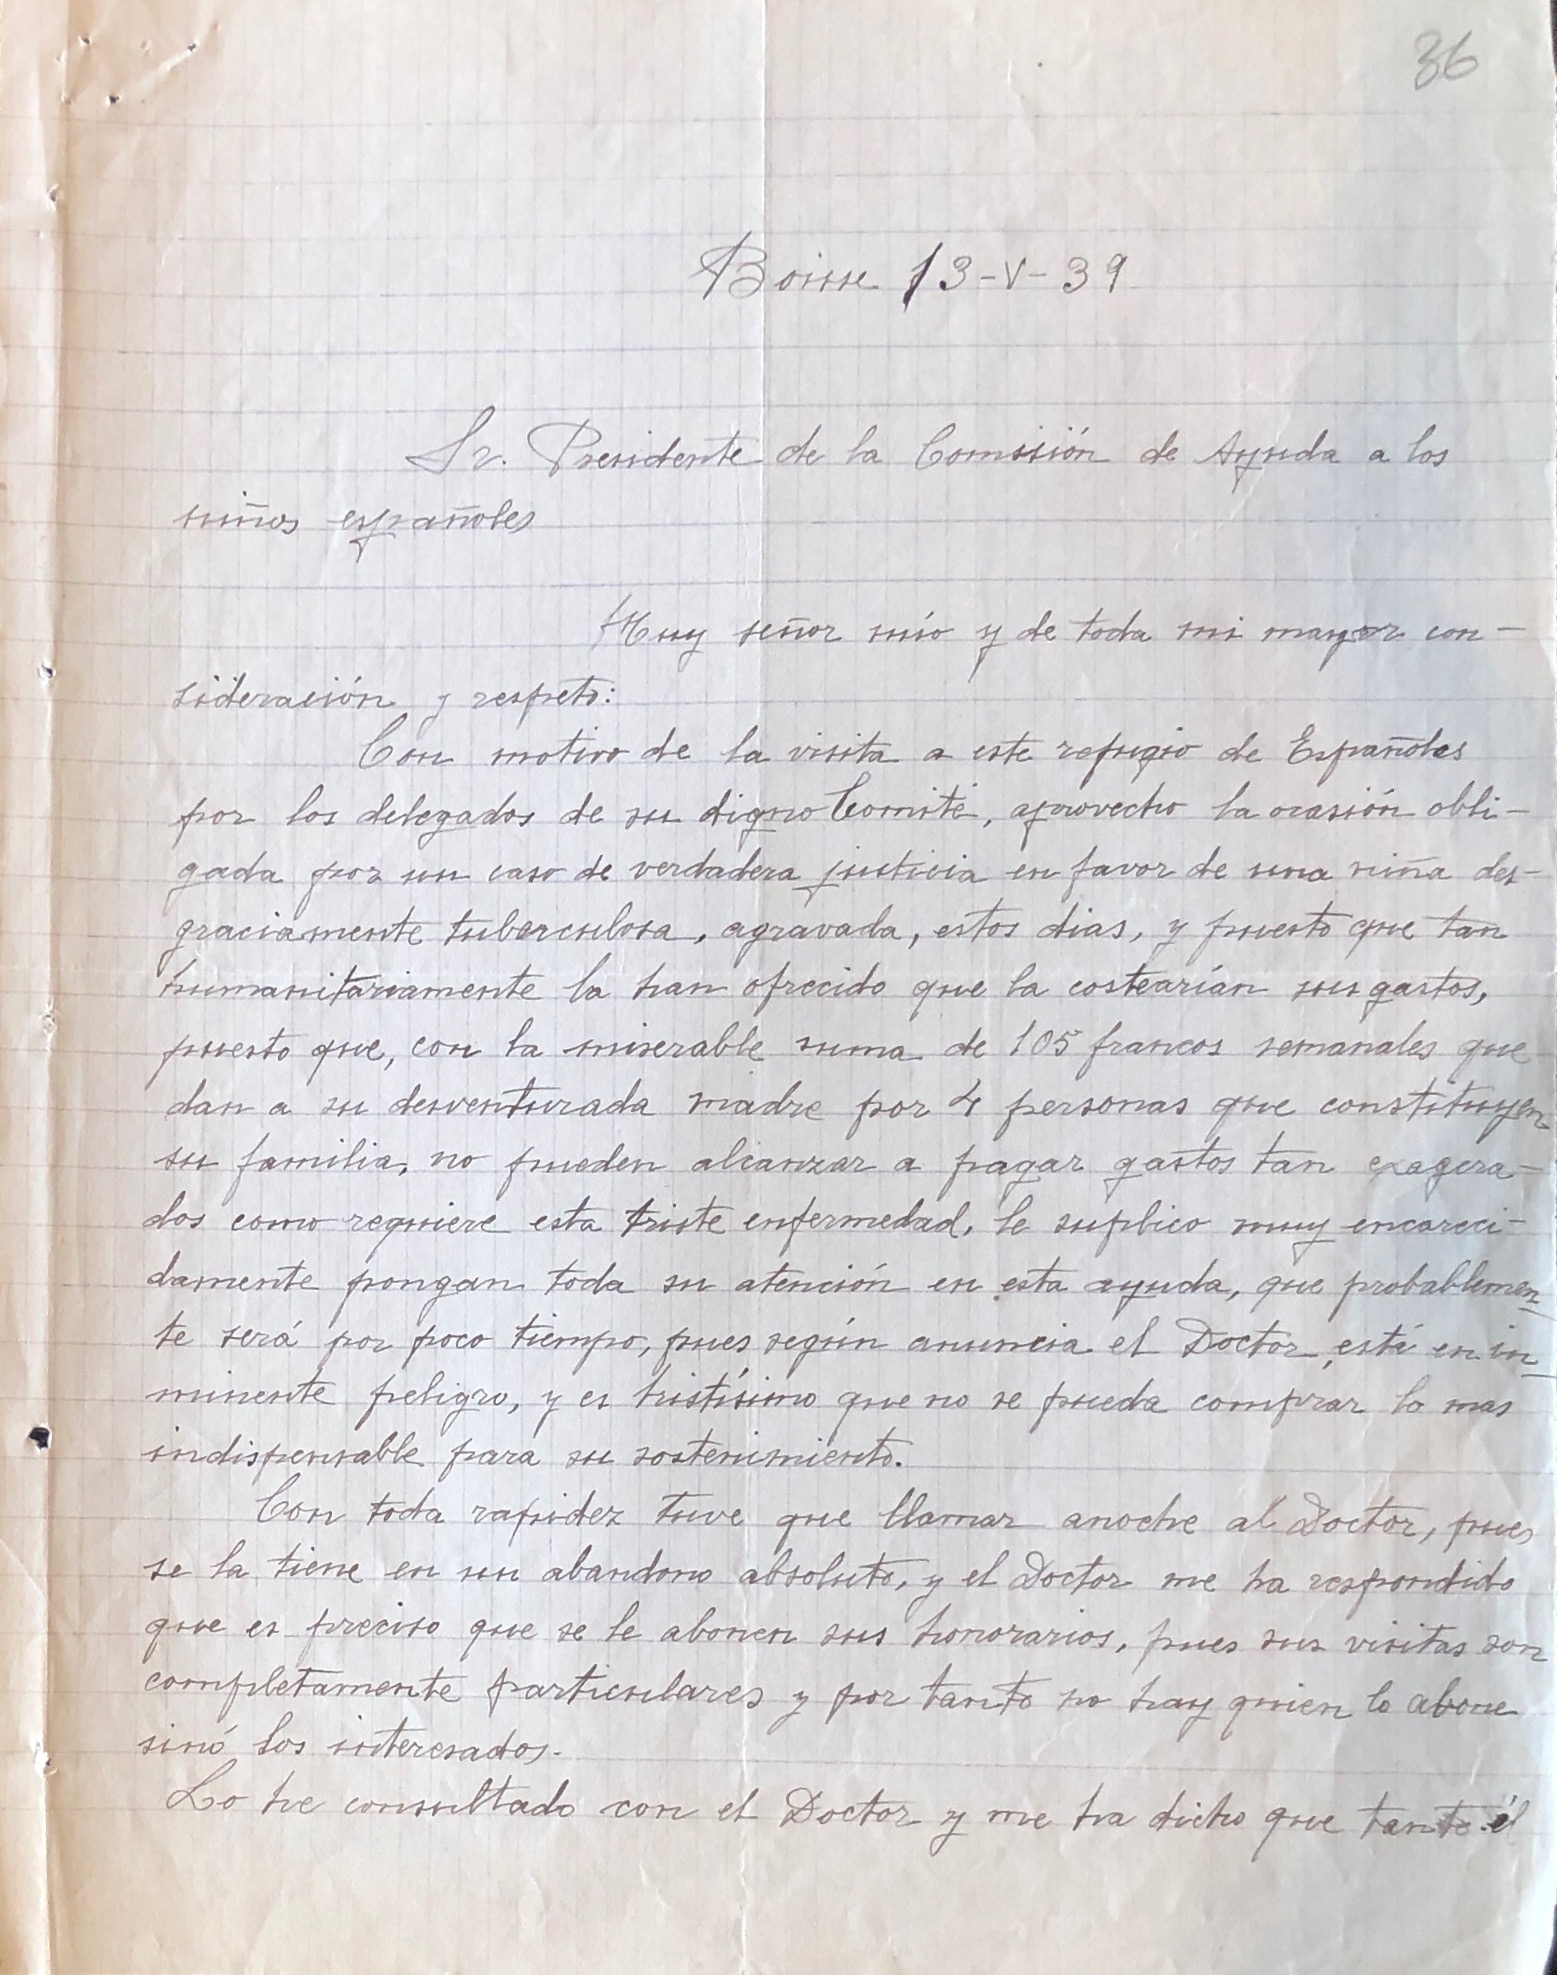 36
Boisse 13-V-39
Sr. Presidente de la Comisión de Ayuda a los
niños españoles
Muy señor mío y de toda mi mayor con-
sideración y respeto:
Con motivo de la visita a este refugio de Españoles
por los delegados de su digno Comité, aprovecho la ocasión obli-
gada por un caso de verdadera justicia en favor de una niña des-
graciamente tuberculosa, agravada, estos dias, y puesto que tan
humanitariamente la han ofrecido que la costearían sus gastos,
puesto que, con la miserable suma de 105 francos semanales que
dan a su desventurada madre por 4 personas que constituyen
su familia, no pueden alcanzar a pagar gastos tan exagera-
dos como requiere esta triste enfermedad, le suplico muy encareci-
damente pongan toda su atención en esta ayuda, que probablemen-
te será por poco tiempo, pues según anuncia el Doctor, está en in-
minente peligro, y es tristísimo que no se pueda comprar lo mas
indispensable para su sostenimiento.
Con toda rapidez tuve que llamar anoche al Doctor, pues
se la tiene en un abandono absoluto, y el Doctor me ha respondido
que es preciso que se le abonen sus honorarios, pues sus visitas son
completamente particulares y por tanto no hay quien lo abone
sinó los interesados.
Lo he consultado con el Doctor y me ha dicho que tanto él